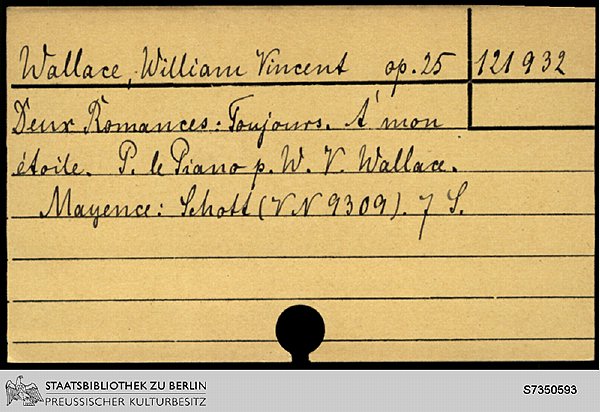 Wallace, William Vincent op. 25 121932
Deux Romances: Toujours. A' mon
étoile. P. le Piano p. W. V. Wallace.
Mayence: Schott (VN 9309). 7 S.
STAATSBIBLIOTHEK ZU BERLIN
PREUSSISCHER KULTURBESITZ
S7350593